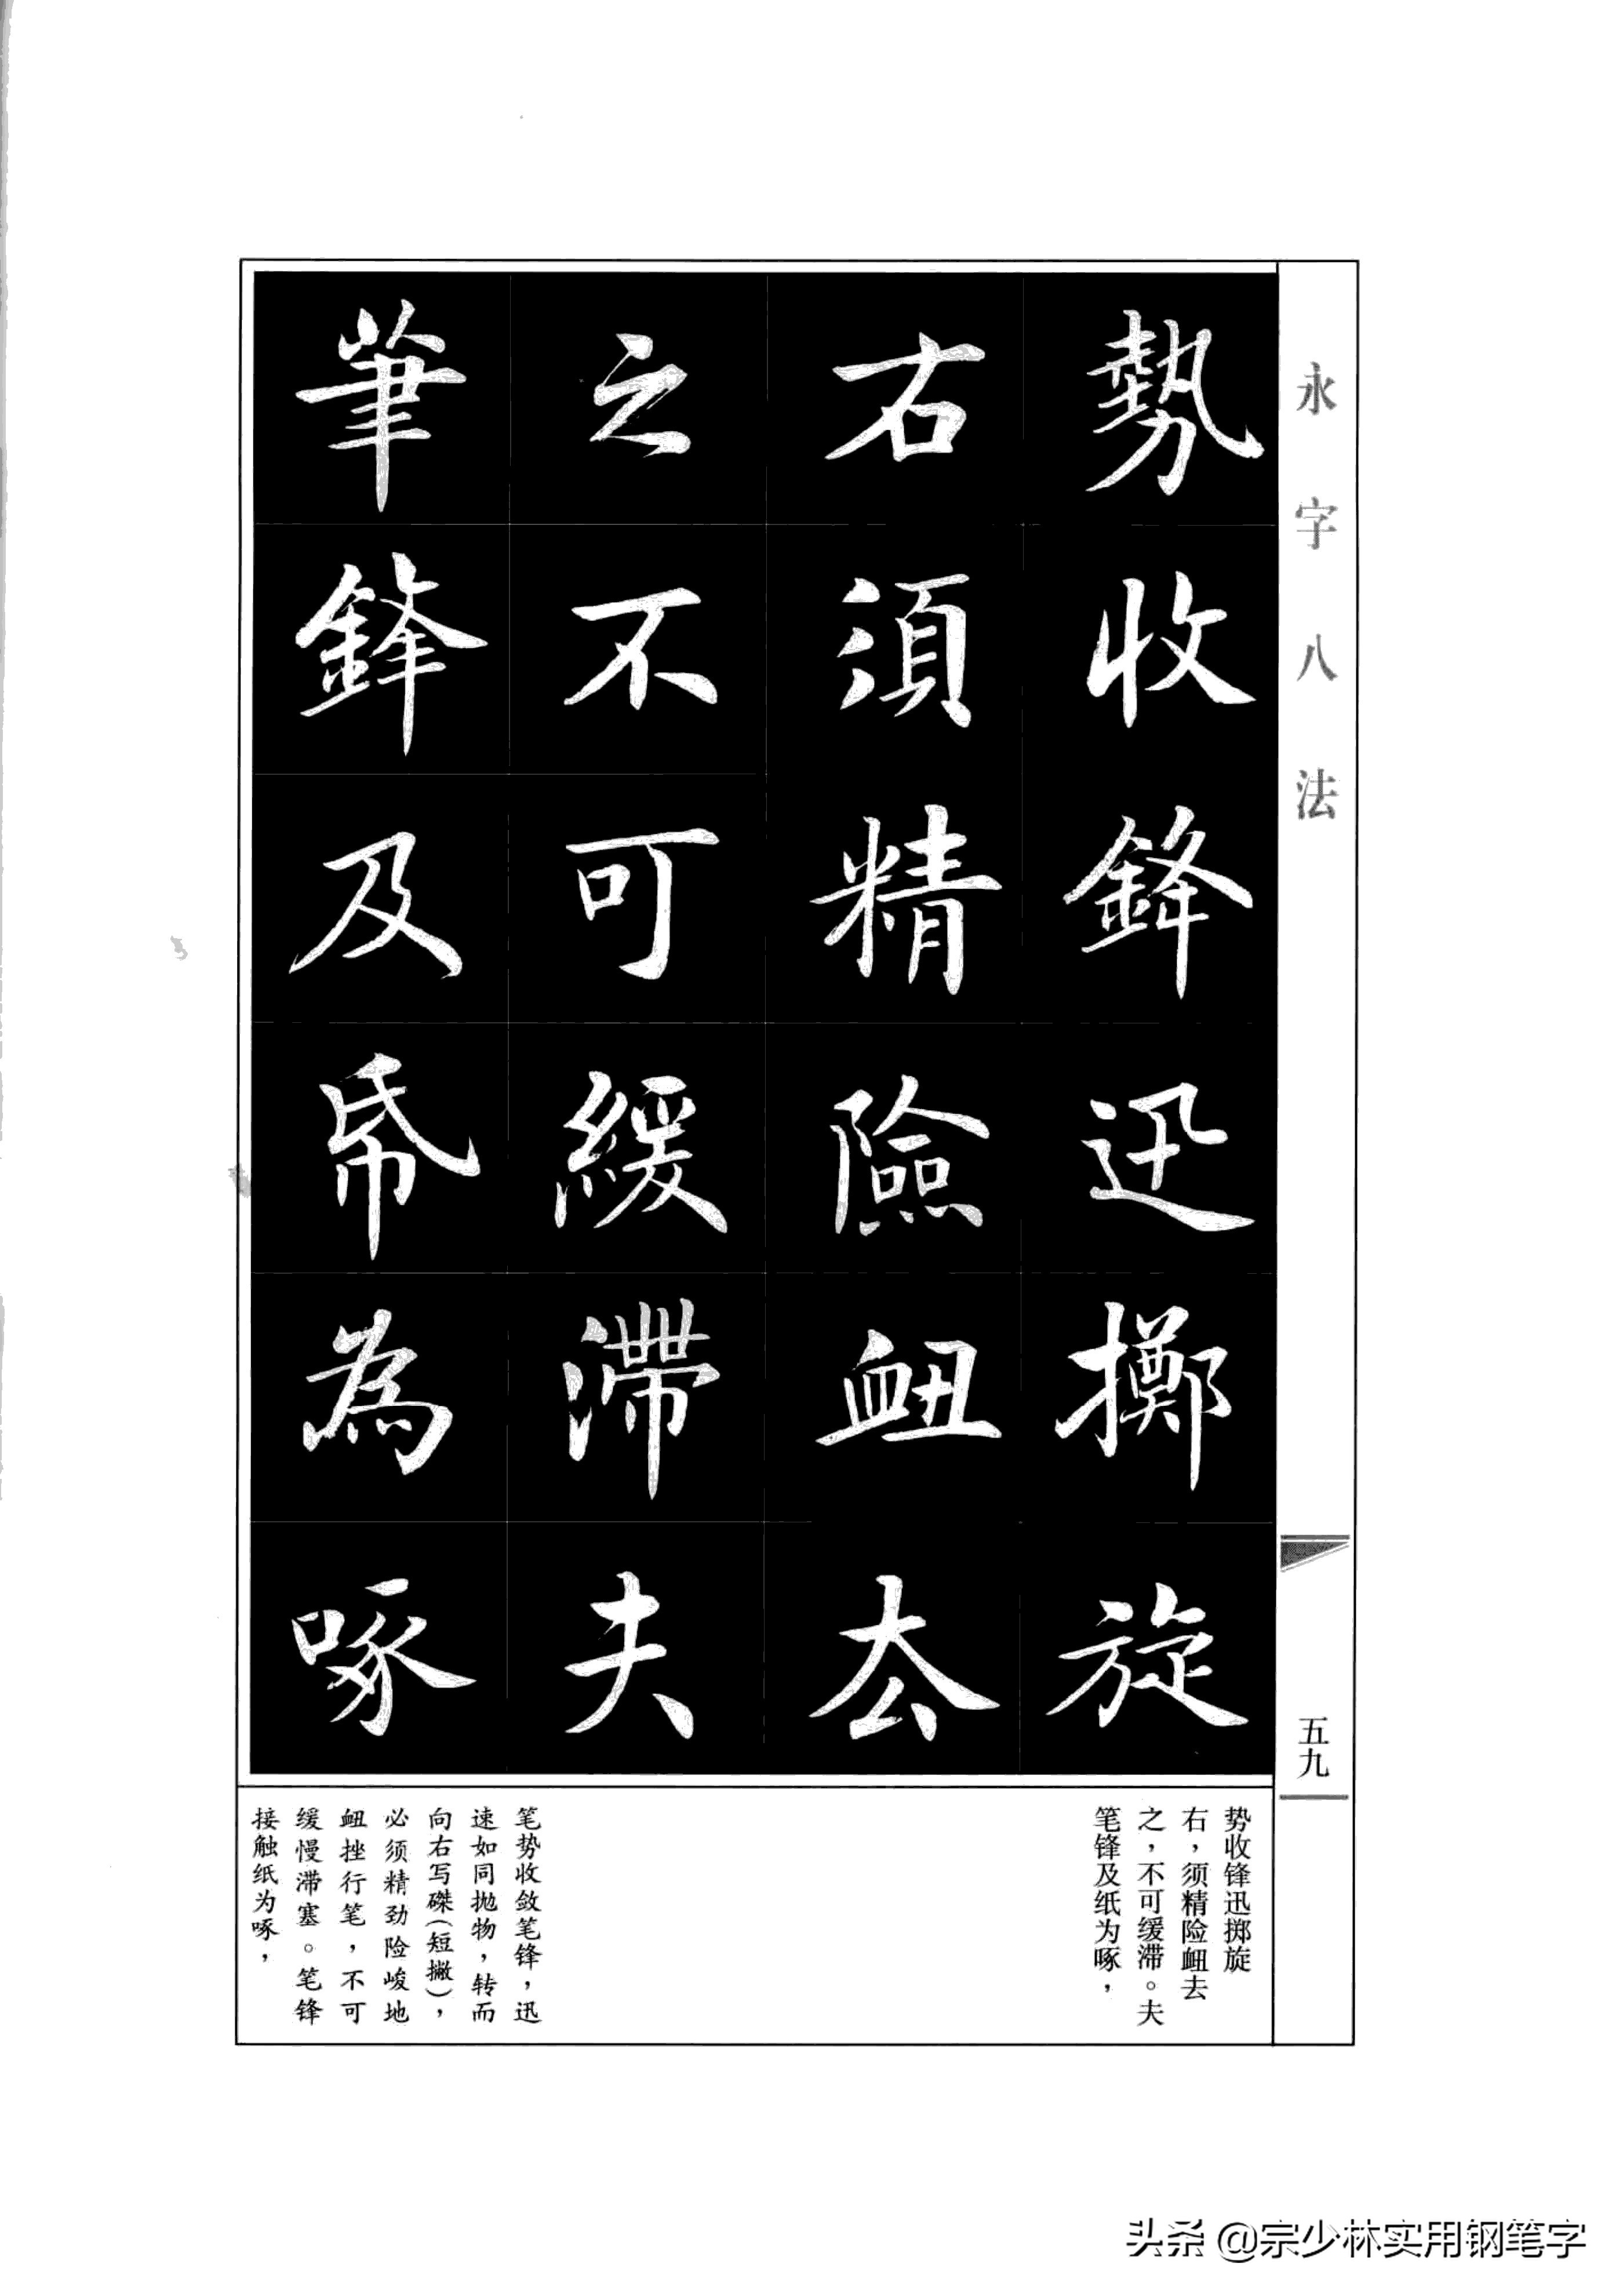 永字八法
五九
勢收鋒迅擲旋
右須精險衄去
之不可緩滯夫
筆鋒及帋為啄
势收锋迅掷旋
右，须精险衄去
之，不可缓滞。夫
笔锋及纸为啄，
笔势收敛笔锋，迅
速如同抛物，转而
向右写磔（短撇），
必须精劲险峻地
衄挫行笔，不可
缓慢滞塞。笔锋
接触纸为啄，
头条 @宗少林实用钢笔字